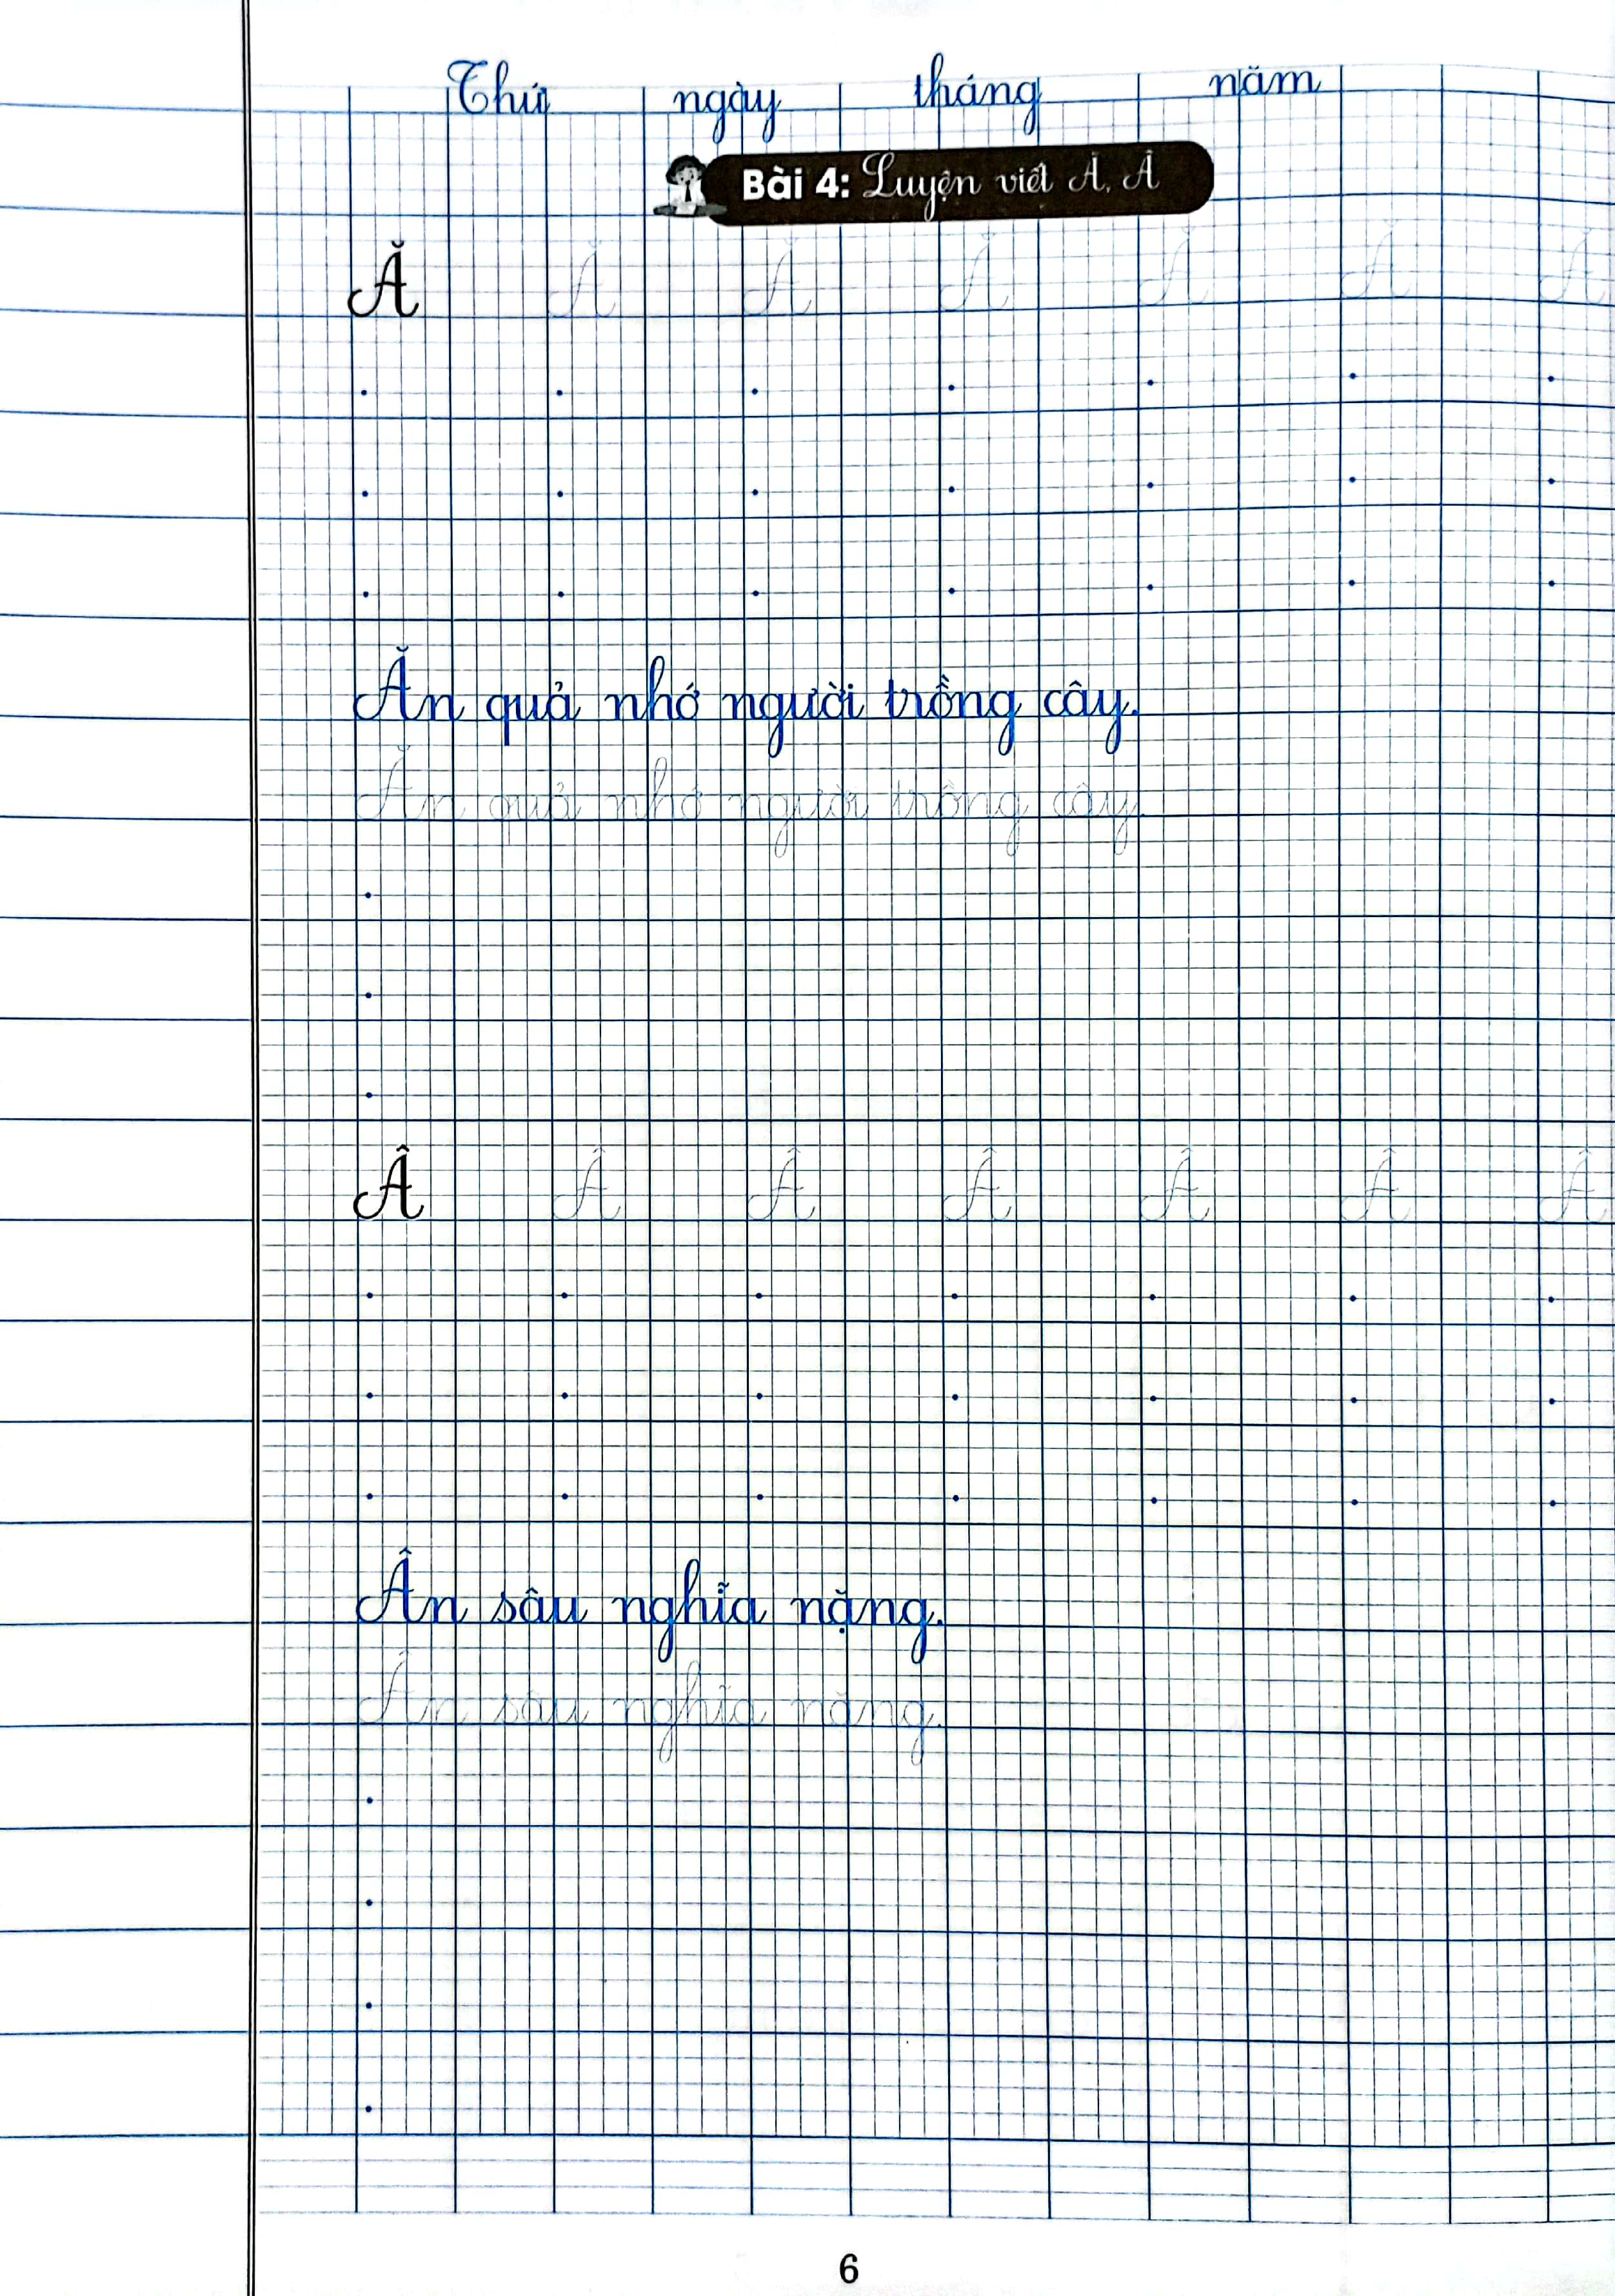 Thứ ngày tháng năm
Bài 4: Luyện viết Ă, Â
Ă Ă Ă Ă Ă Ă Ă
Ăn quả nhớ người trồng cây.
Ăn quả nhớ người trồng cây.
Â Â Â Â Â Â Â
Ân sâu nghĩa nặng.
Ân sâu nghĩa nặng.
6